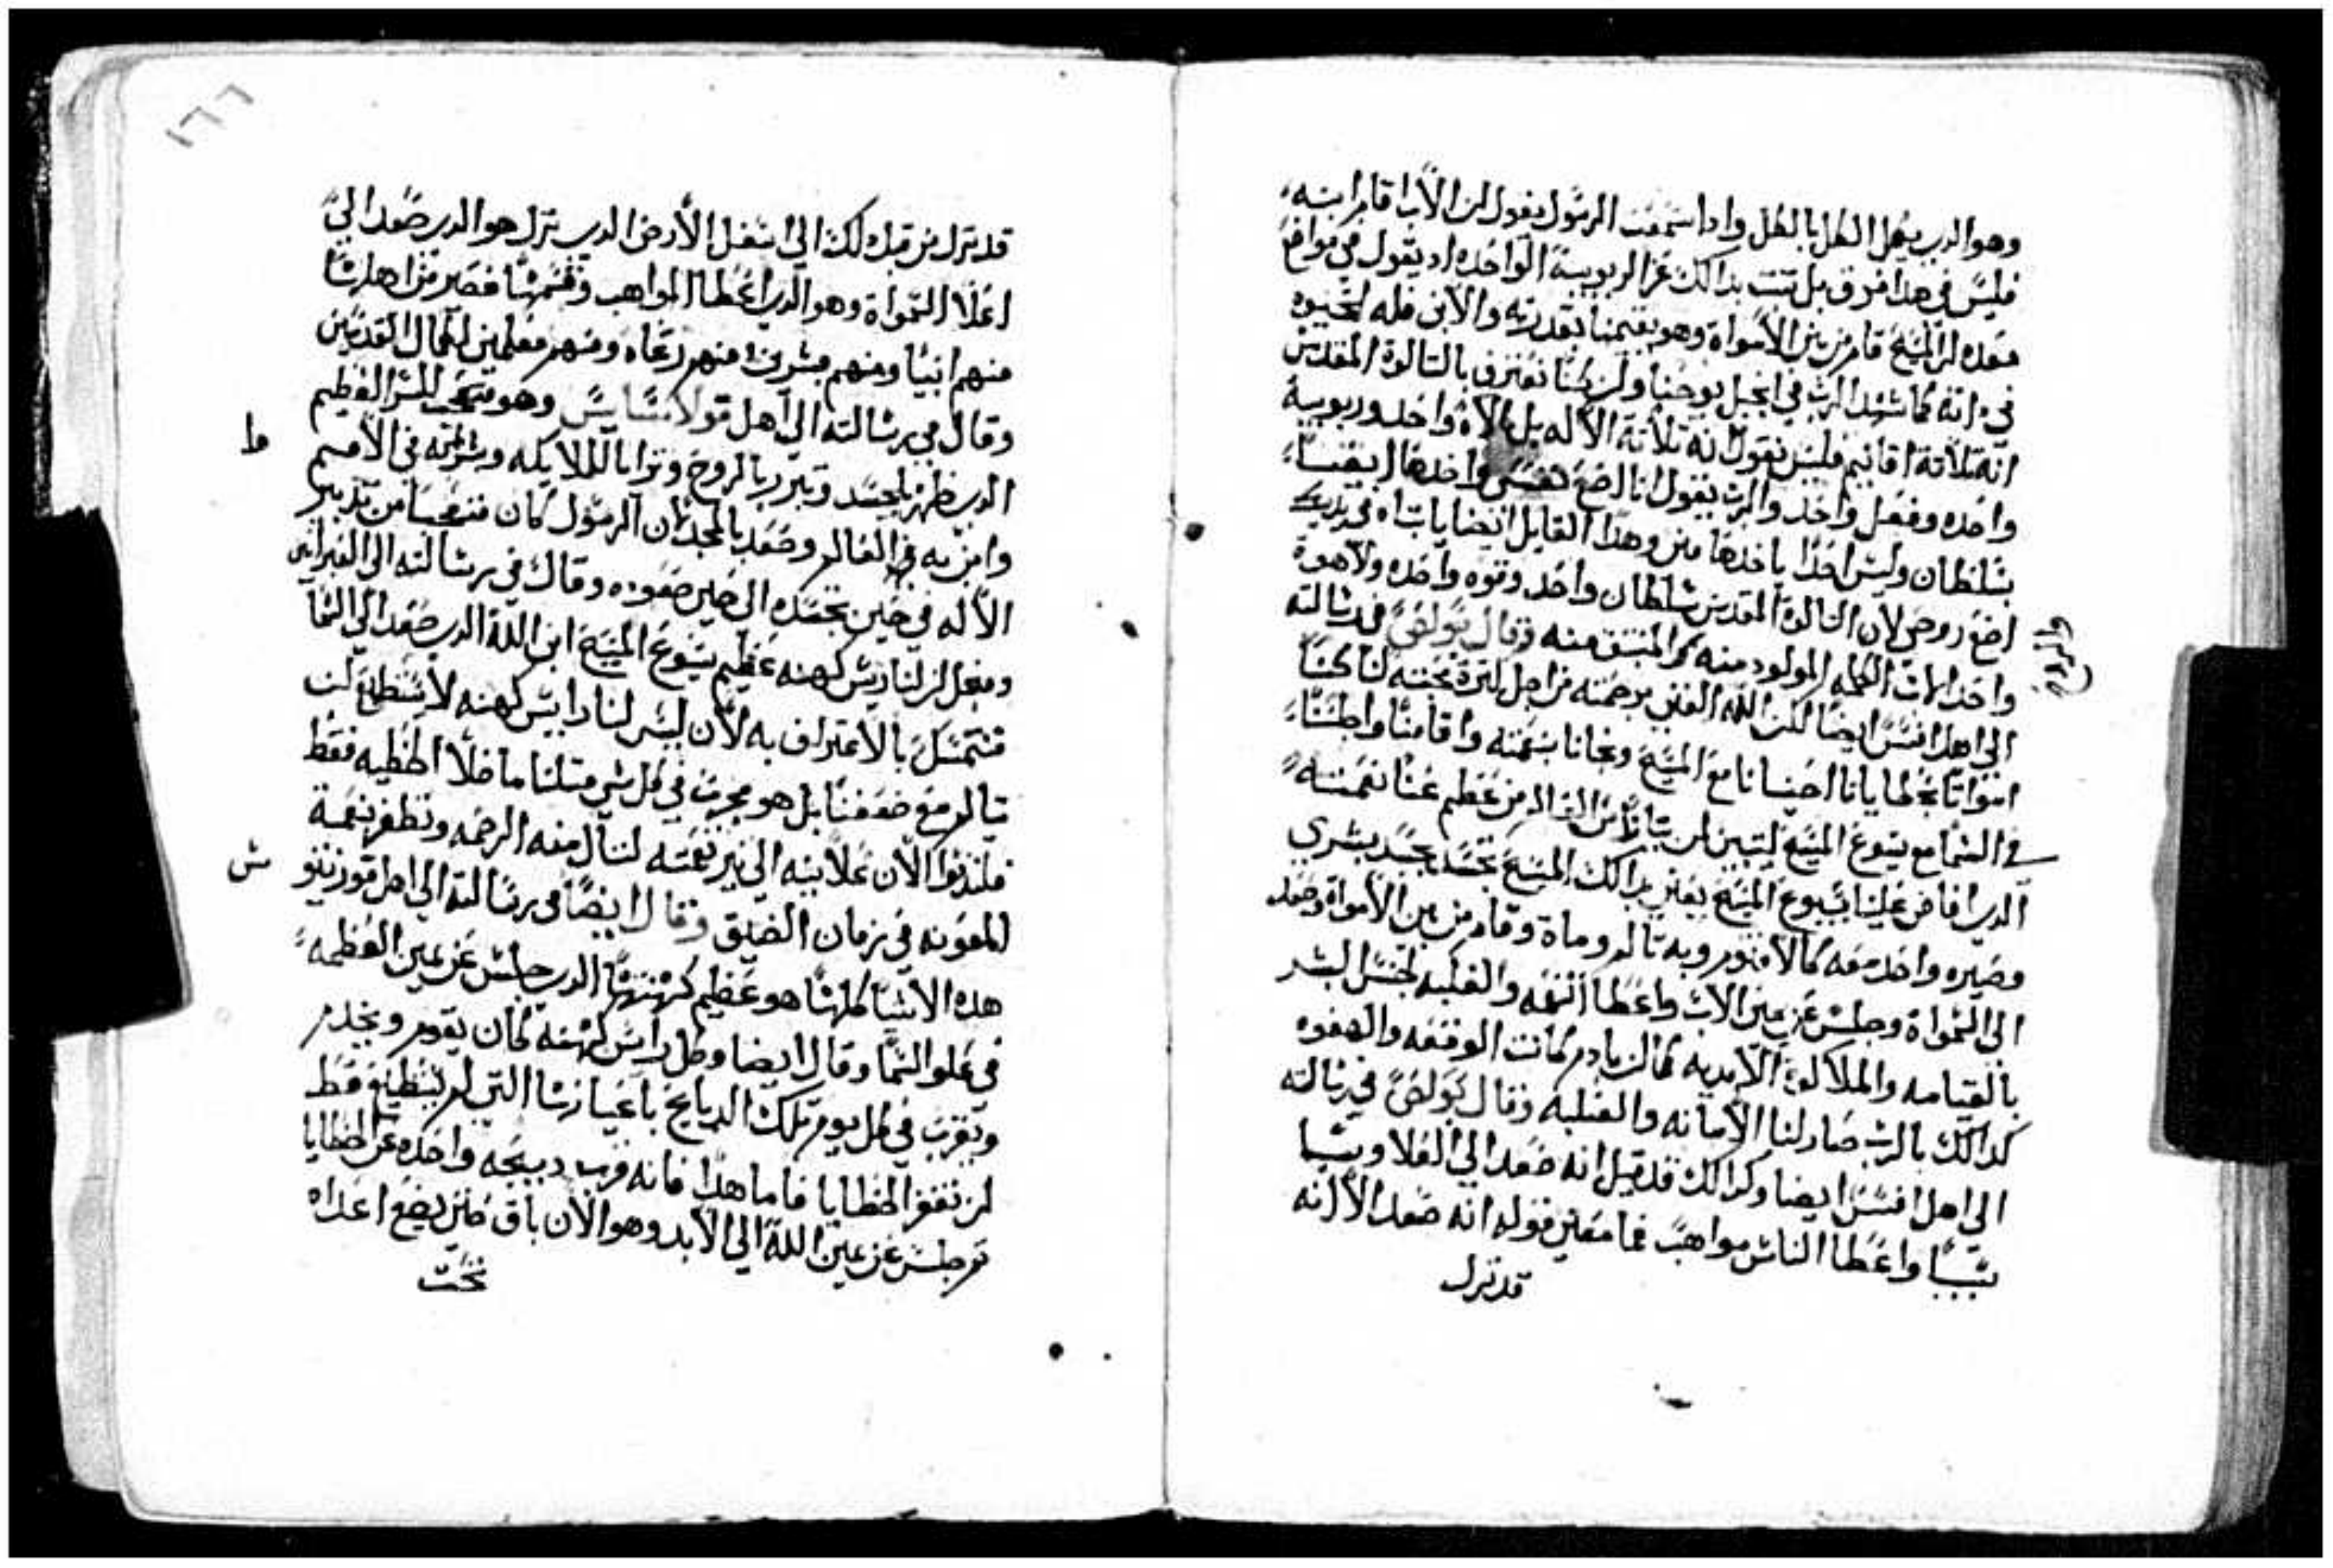 وهو الدي يكمل الكل بالكل وادا سمعت الرسول يقول ان الاب اقام ابنه
فليس في هدا فرق بل تتبت بدالك عن الربوبية الواحده اد يقول في مواضع
عده ان المسيح قام من بين الاموات وهو يقيمنا بقدرته والابن فله الحيوه
في داته كما شهد الرب في انجيل يوحنا وان كنا نعترف بالتالوت المقدس
انه تلاتة اقانيم فليس نقول انه تلاتة الاله بل الاه واحد وربوبية
واحده وفعل واحد والرب يقول انا اضع نفسي واخدها ايضا
بسلطان وليس احدا ياخدها مني وهدا القايل ايضا يا ابتاه في يديك
اضع روحي لان التالوت المقدس سلطان واحد وقوه واحده ولاهوت
واحد الاب الكلمه المولود منه المنبتق منه وقال بولص في رسالته
الى اهل افسس ايضا لكن الله الغني برحمته من اجل كترة محبته لنا كنا
امواتا بخطايانا احيانا مع المسيح ونجانا بنعمته واقامنا واجلسنا
في السما مع يسوع المسيح ليتبين من عظم غنا نعمته
الدي افاض علينا يسوع المسيح يعني بدالك المسيح تجسد بجسد بشري
وصيره واحد معه كالاقنوم وبه تالم ومات وقام من بين الاموات وصعد
الى السموات وجلس عن يمين الاب واعطا النعمه والغلبه لجنس البشر
بالقيامه والملكوت الابديه كما ان بادم كانت الوقعه والهفوه
كدالك بالرب صار لنا الامانه والغلبه وقال بولص في رسالته
الى اهل افسس ايضا وكدالك قد قيل انه صعد الى العلا وسبا
سبيا واعطا الناس مواهب فما معنى قوله انه صعد الا انه
قد نزل
١٦٦
قد نزل من قبل دلك الى اسفل الارض الدي نزل هو الدي صعد الى
اعلا السموات وهو الدي اعطا المواهب وقسمها فصير من اهلها
منهم انبيا ومنهم مبشرين منهم رعاه ومنهم معلمين لكمال القديسين
وقال في رسالته الى اهل قولاسايس وهو متعجب للسر العظيم
الدي ظهر بالجسد وتبرر بالروح وترايا للملايكه وبشر به في الامم
وامن به في العالم وصعد بالمجد لان الرسول كان متعجبا من تدبير
الاله في حين تجسده الى حين صعوده وقال في رسالته الى العبرانيين
ومعما ان لنا ريس كهنه عظيم يسوع المسيح ابن الله الدي صعد الى السما
فنتمسك بالاعتراف به لان ليس لنا رايس كهنه لا يستطيع ان
يتالم مع ضعفنا بل هو مجرب في كل شي متلنا ما خلا الخطيه فقط
فلندنوا الان علانيه الى نعمته لننال منه الرحمه ونظفر بنعمة
المعونه في زمان الضيق وقال ايضا في رسالته الى اهل قورنتيو
هده الاشيا كلها هو عظيم كهنتها الدي جلس عن يمين العظمه
في علو السما وقال ايضا وكل رايس كهنه كان يقوم ويخدم
ويقرب في كل يوم تلك الدبايح باعيانها التي لم تستطيع قط
ان تغفر الخطايا فاما هدا فانه قرب دبيحه واحده عن الخطايا
تم جلس عن يمين الله الى الابد وهو الان باق حتى يضع اعداه
تحت
ط
ش